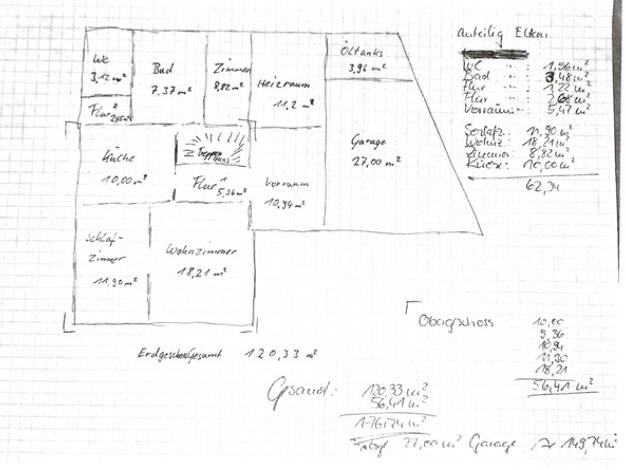 WC
3,12 m²
Bad
7,37 m²
Zimmer
8,82 m²
Heizraum
11,2 m²
Öltanks
3,96 m²
Flur²
Küche
10,00 m²
Treppenhaus
Flur¹
5,36 m²
Vorraum
10,94 m²
Garage
27,00 m²
Schlaf-
zimmer
11,90 m²
Wohnzimmer
18,21 m²
Erdgeschoss gesamt 120,33 m²
anteilig Eltern
WC 1,56 m²
Bad 3,48 m²
Flur 1,22 m²
Flur 2,68 m²
Vorraum 5,47 m²
Schlafz. 11,90 m²
Wohnz. 18,21 m²
Zimmer 8,82 m²
Küche 10,00 m²
62,34
Obergschoss
10,00
9,36
10,94
11,90
18,21
56,41 m²
Gesamt: 120,33 m²
56,41 m²
176,74 m²
27,00 m² Garage 149,74 m²